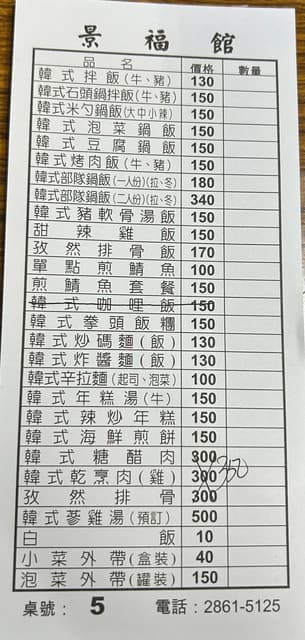 景福館
品名 價格 數量
韓式拌飯(牛、豬) 130
韓式石頭鍋拌飯(牛、豬) 150
韓式米勺鍋飯(大中小辣) 150
韓式泡菜鍋飯 150
韓式豆腐鍋飯 150
韓式烤肉飯(牛、豬) 150
韓式部隊鍋飯(一人份)(拉、冬) 180
韓式部隊鍋飯(二人份)(拉、冬) 340
韓式豬軟骨湯飯 150
甜辣雞飯 150
孜然排骨飯 170
單點煎鯖魚 100
煎鯖魚套餐 150
韓式咖哩飯 150
韓式拳頭飯糰 150
韓式炒碼麵(飯) 130
韓式炸醬麵(飯) 130
韓式辛拉麵(起司、泡菜) 100
韓式年糕湯(牛) 150
韓式辣炒年糕 150
韓式海鮮煎餅 150
韓式糖醋肉 300
韓式乾烹肉(雞) 300 350
孜然排骨 300
韓式蔘雞湯(預訂) 500
白飯 10
小菜外帶(盒裝) 40
泡菜外帶(罐裝) 150
桌號： 5 電話：2861-5125